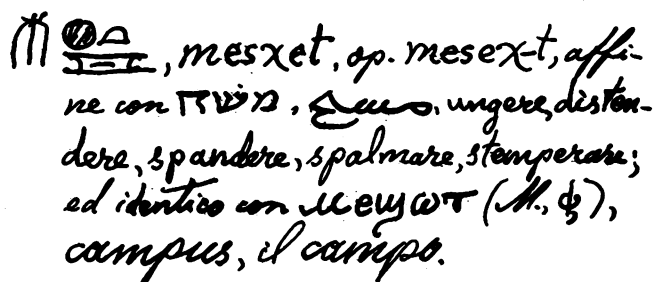 𓄟𓐍𓏏, mesχet, op. mesex-t, affi-
ne con משח, مسح, ungere, disten-
dere, spandere, spalmare, stemperare;
ed identico con ⲙⲉϣⲱⲧ (M., ϕ),
campus, il campo.